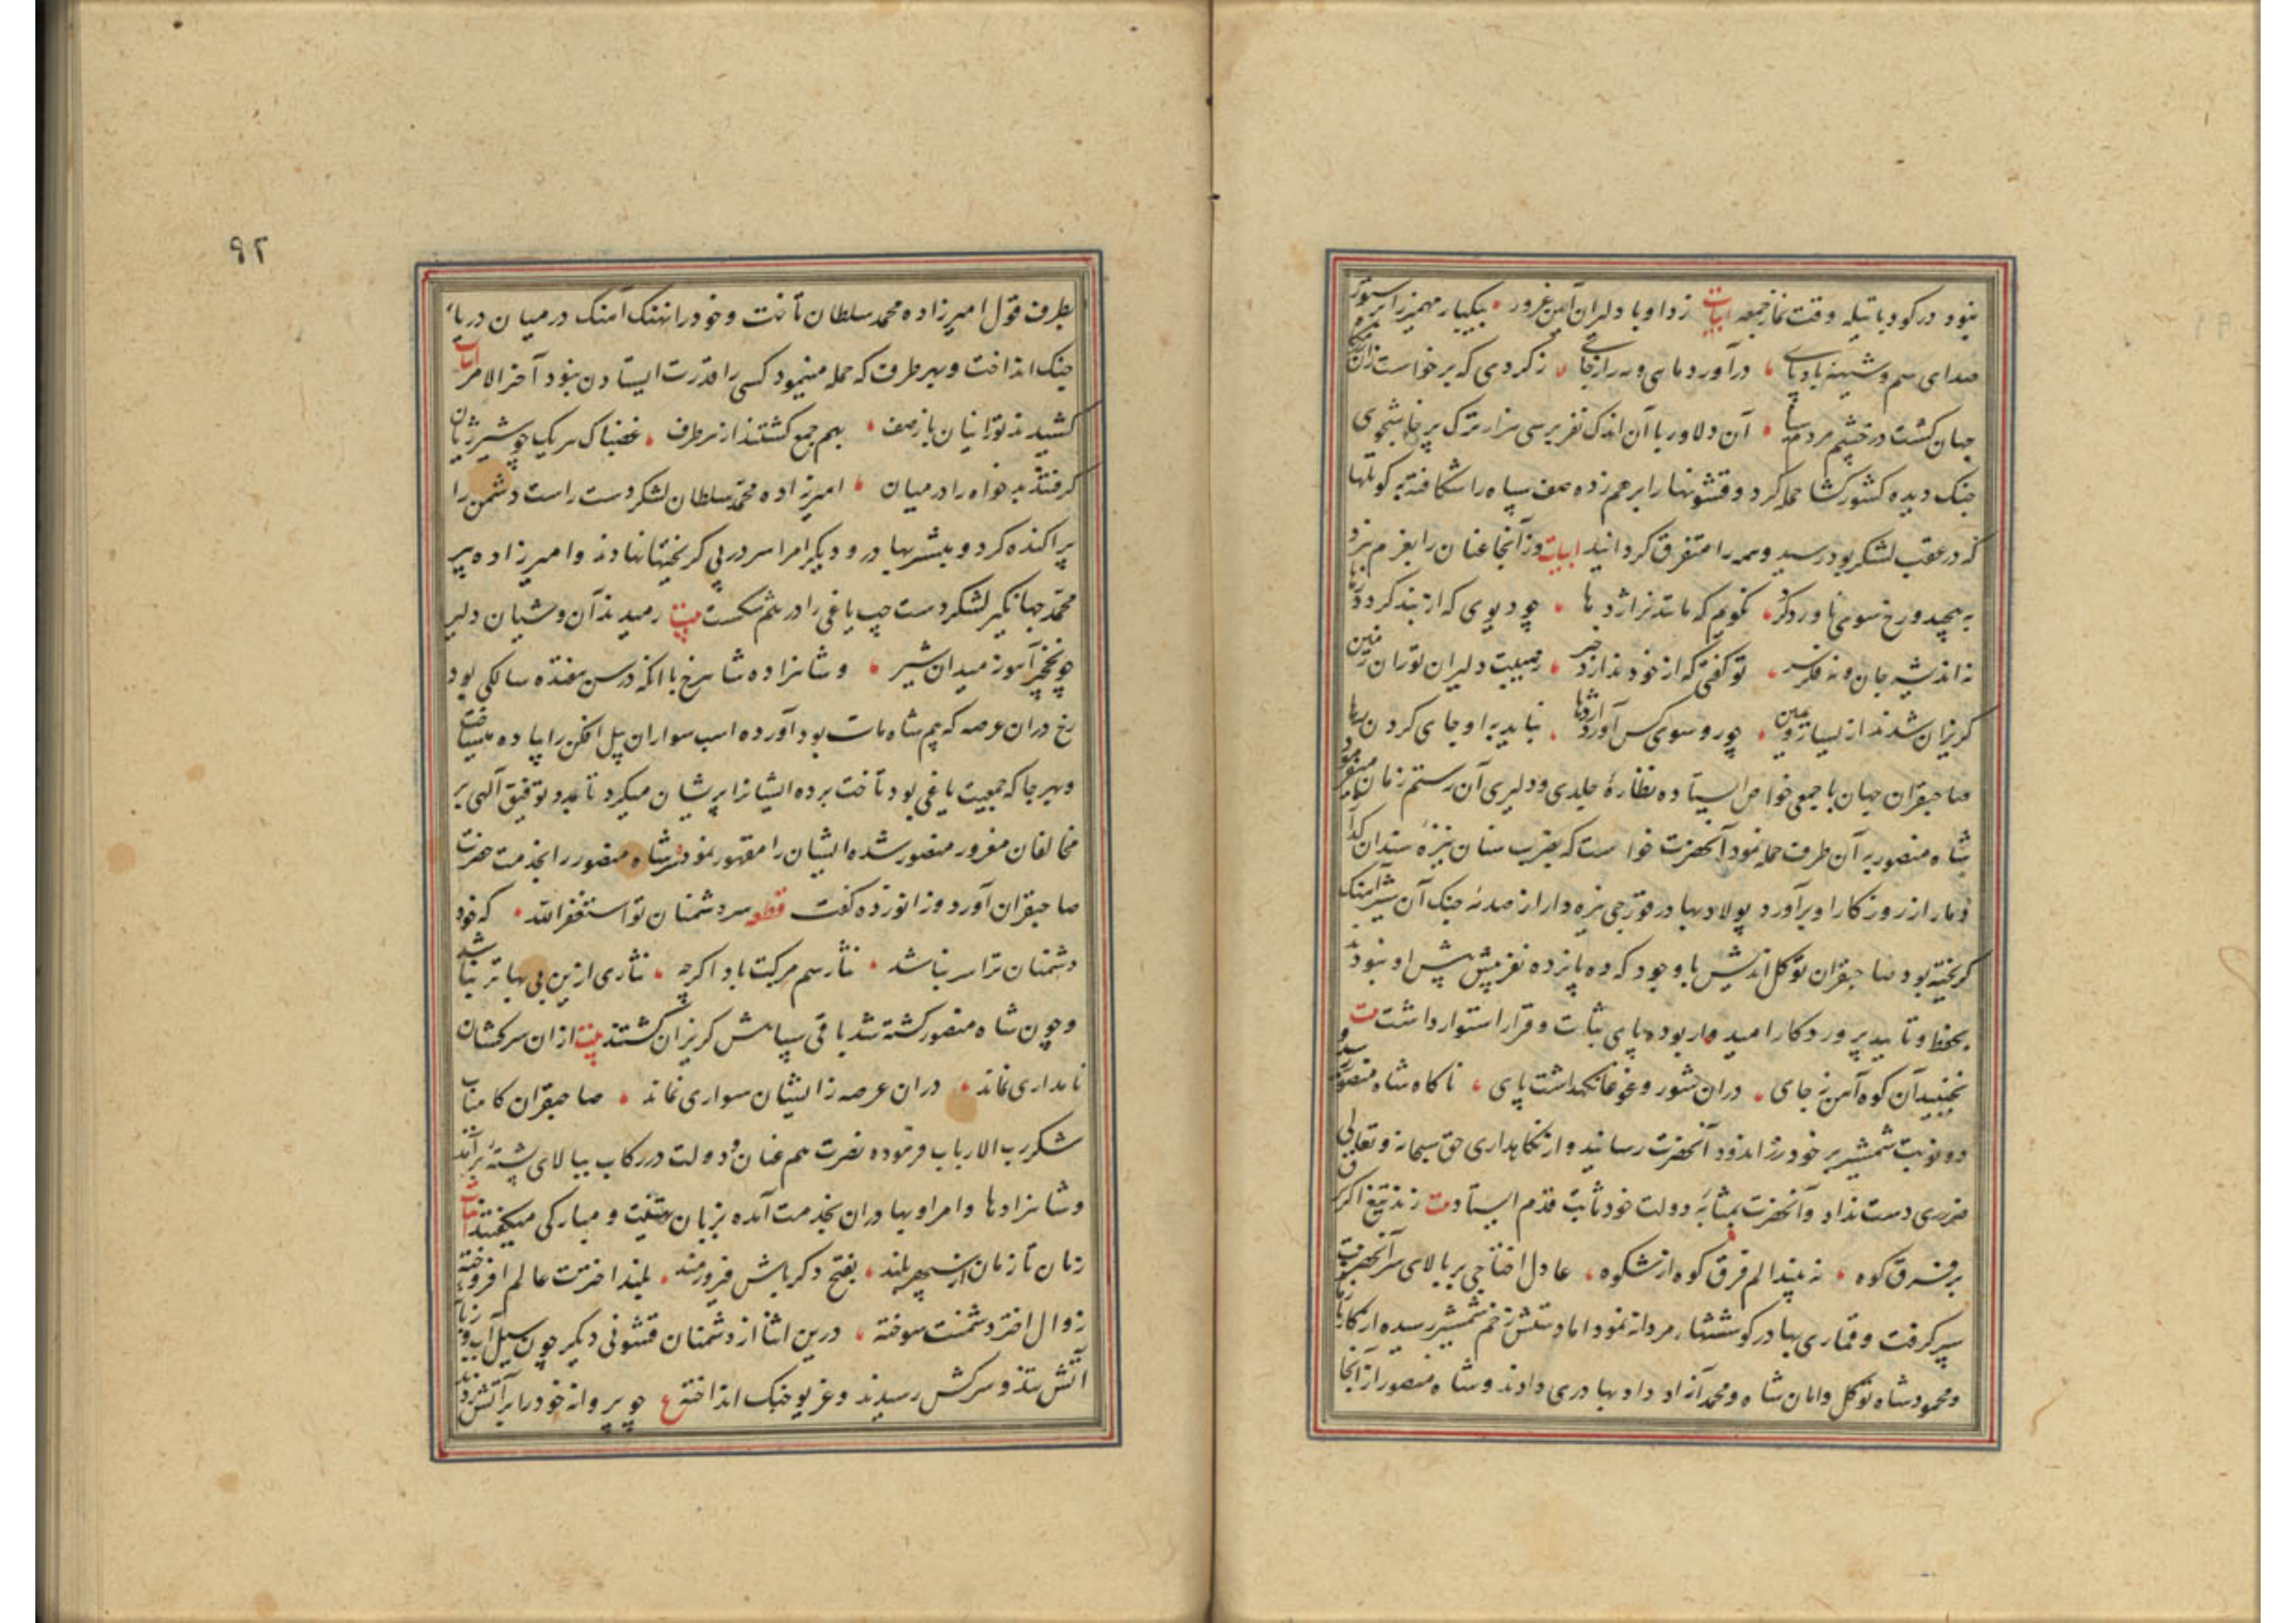 بنود در کود باتیله وقت نماز جمعه ابیات زد او با دلیران آهن غرور بیکبار مهمیز را بر ستور
صدای سم و شیهه بادپای درآورد ماهی و مه را ز جای ز کردی که برخواست زان
جهان کشت در چشم مردم سیاه آن دلاور با آن اندک نفر بر سی هزار ترک پرخاشجوی
جنک دیده کشورکشا حمله کرد و قشونها را بر هم زده صف سپاه را شکافته به کوتلها
که در عقب لشکر بود رسید و همه را متفرق کردانید ابیات وز آنجا عنان را بعزم نبرد
به پیچید و رخ سوی ناورد کرد نکویم که مانند نر اژدها چو دیوی که از بند کردد رها
نه اندیشه جان و نه فکر سر تو کفتی که از خود ندارد خبر ز هیبت دلیران توران زمین
کریزان شدند از یسار و یمین چو رو سوی کس آورد اژدها نباید به او جای کردن رها
صاحبقران جهان با جمعی خواص ایستاده نظارهٔ جلدی و دلیری آن رستم زمان میفرمود
شاه منصور به آن طرف حمله نمود آنحضرت خواست که بضرب سنان نیزه سندان کذار
دمار از روزکار او برآورد پولاد بهادر قورجی نیزه دار از صدمه جنک آن شیر آهنک
کریخته بود صاحبقران توکل اندیش با وجود که ده پانزده نفر پیش پیش او نبودند
بحفظ و تایید پروردکار امیدوار بوده پای ثبات و قرار استوار داشت بیت
نجنبید آن کوه آهن ز جای دران شور و غوغا نکهداشت پای ناکاه شاه منصور رسید و
دو نوبت شمشیر بر خود زر اندود آنحضرت رسانید و از نکاهداری حق سبحانه و تعالی
ضرری دست نداد و آنحضرت بمثابه دولت خود ثابت قدم ایستاد بیت زند تیغ اکر برق
بر فرق کوه نه بیند الم فرق کوه از شکوه عادل اختاجی بر بالای سر آنحضرت
سپر کرفت و قماری بهادر کوششهاء مردانه نمود اما دستش زخم شمشیر رسیده از کار باز ماند
و محمود شاه توکل و امان شاه و محمد آزاد داد بهادری دادند و شاه منصور از آنجا
۹۲
بطرف قول امیرزاده محمد سلطان تاخت و خود را نهنک آهنک در میان دریاء
جنک انداخت و بهر طرف که حمله مینمود کسی را قدرت ایستادن نبود آخر الامر ابیات
کشیدند تورانیان باز صف بهم جمع کشتند از هر طرف غضبناک هر یک چو شیر ژیان
کرفتند بدخواه را در میان امیرزاده محمد سلطان لشکر دست راست دشمن را
پراکنده کرد و مبشر بهادر و دیکر امرا سر در پی کریختها نهادند و امیرزاده پیر
محمد جهانکیر لشکر دست چپ یاغی را در هم شکست بیت رمیدند آن وشیان دلیر
چو نخجیر آهو ز میدان شیر و شاهزاده شاهرخ با انکه در سن هفده سالکی بود
رخ دران عرصه که بیم شاه مات بود آورده اسب سواران پیل افکن را پیاده میساخت
و بهر جا که جمعیت یاغی بود تاخت برده ایشانرا پریشان میکرد تا بمدد توفیق آلهی بر
مخالفان مغرور منصور شده ایشان را مقهور نمود و سر شاه منصور را بخدمت حضرت
صاحبقران آورد و زانو زده کفت قطعه سر دشمنان تو استغفرالله که خود
دشمنان ترا سر نباشد نثار سم مرکبت باد اکرچه نثاری ازین بی بهاتر نباشد
و چون شاه منصور کشته شد باقی سپاهش کریزان کشتند بیت ازان سرکشان
نامداری نماند دران عرصه زایشان سواری نماند صاحبقران کامیاب
شکر رب الارباب فرموده نصرت هم عنان و دولت در رکاب ببالای پشته برآمد
و شاهزادها و امرا و بهادران بخدمت آمده بزبان تهنیت و مبارکی میکفتند ابیات
زمان تا زمان از سپهر بلند بفتح دکر باش فیروزمند بلند اخترت عالم افروخته
زوال اختر دشمنت سوخته درین اثنا از دشمنان قشونی دیکر چون سیل آب و زبانه
آتش تند و سرکش رسیدند و غریو جنک انداختند ع چو پروانه خود را بر آتش زدند